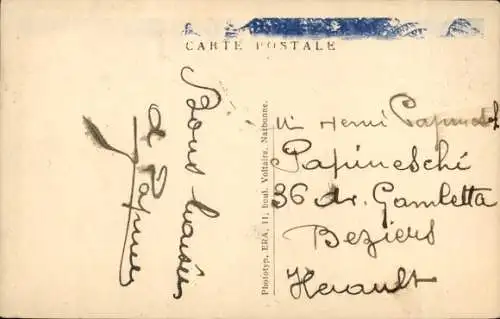 CARTE POSTALE
Bons baisers
Phototyp. ERA, 11, boul. Voltaire, Narbonne.
Mr Henri
Papineschi
36 av. Gambetta
Beziers
Herault